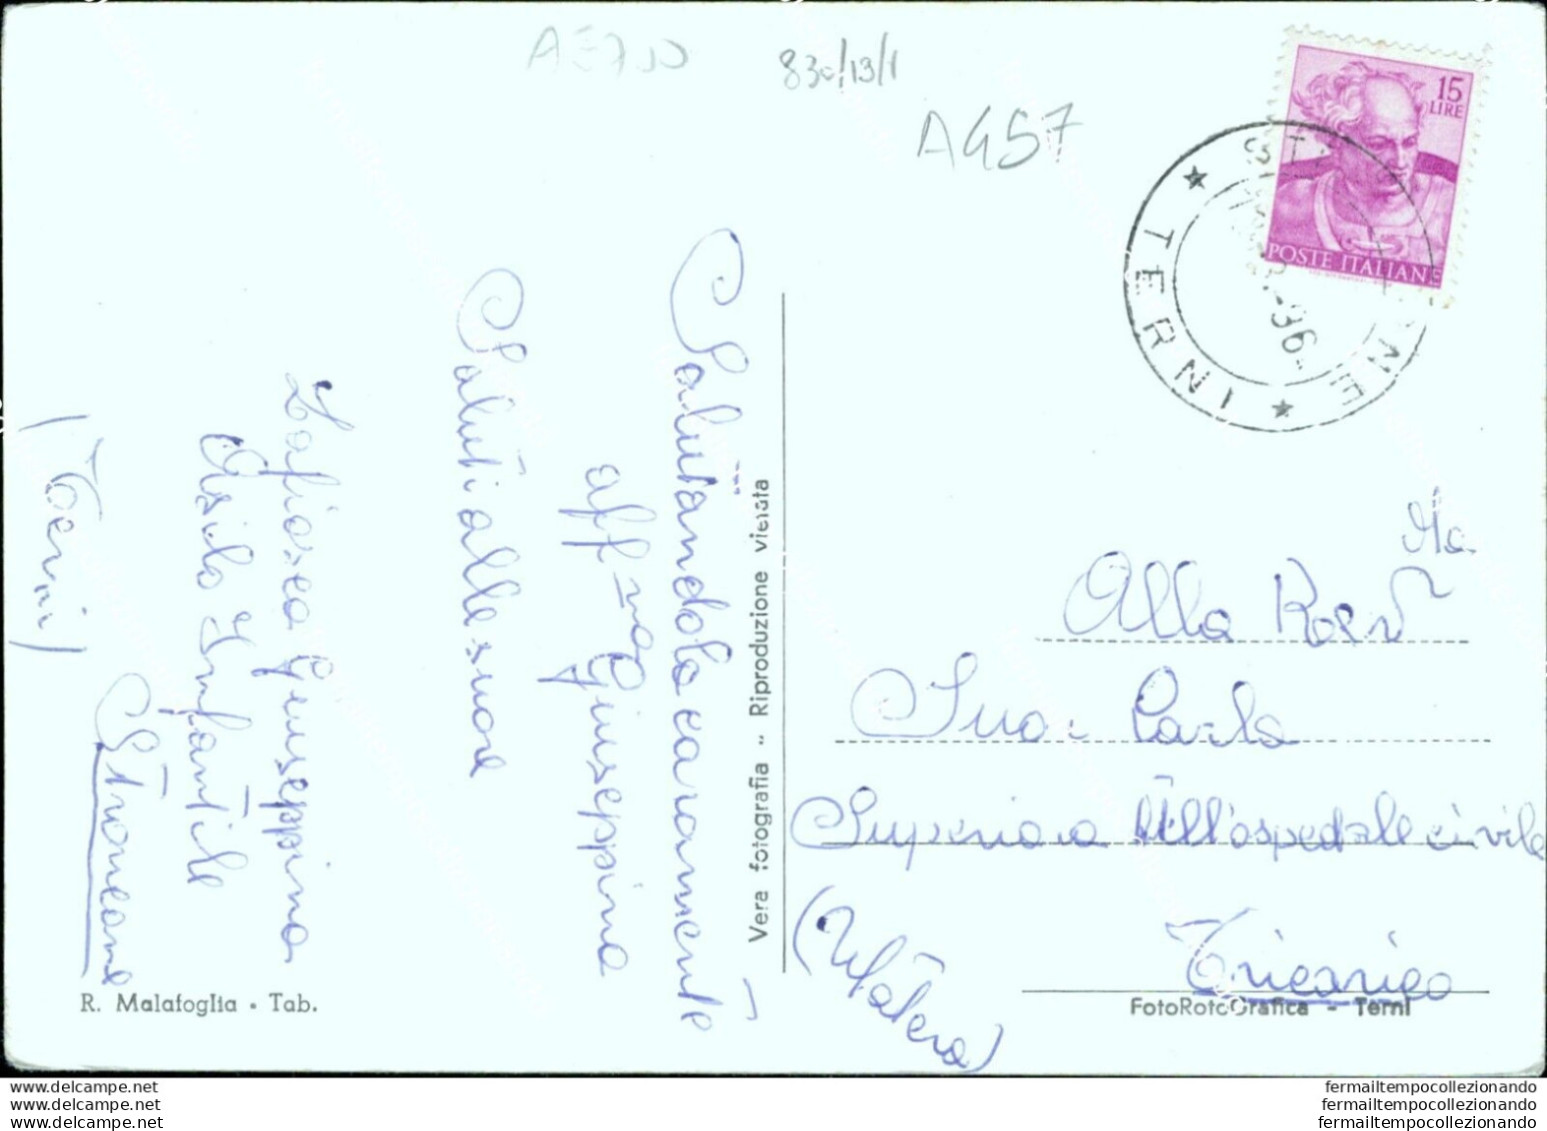 AE700
830/13/1
A457
15
LIRE
POSTE ITALIANE
TERNI
Salutandola caramente
aff-ma Giuseppina
Saluti alle suore
Giuseppina
Asilo Infantile
Stroncone
(Terni)
Vera fotografia - Riproduzione vietata
Alla Rev Ma
Suor Carla
Superiora dell'ospedale civile
Tricarico
(Matera)
R. Malafoglia - Tab.
FotoRotoGrafica - Terni
www.delcampe.net
www.delcampe.net
www.delcampe.net
fermailtempocollezionando
fermailtempocollezionando
fermailtempocollezionando